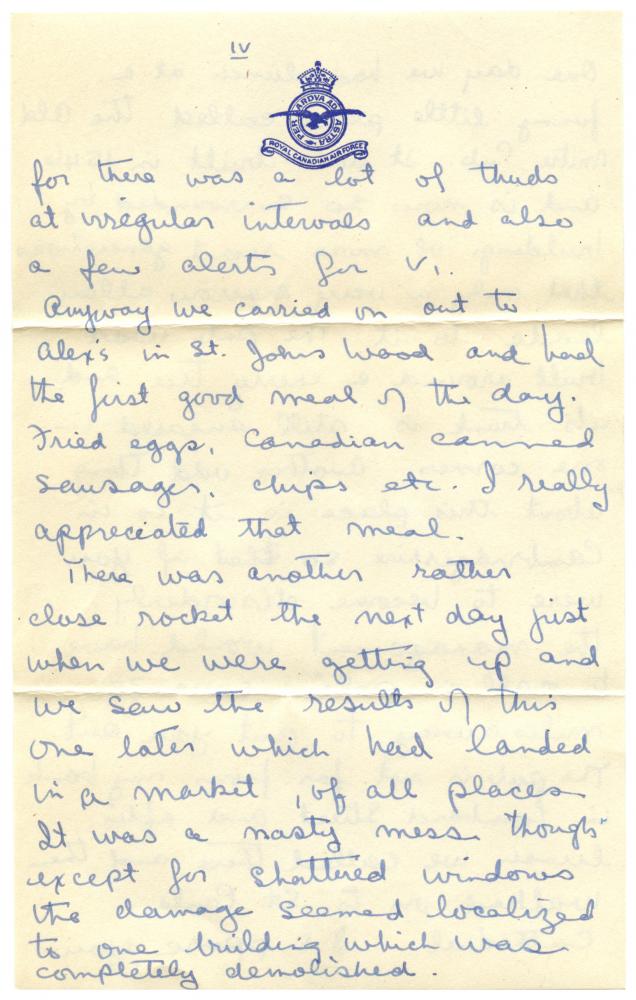 IV
PER ARDVA AD ASTRA
ROYAL CANADIAN AIR FORCE
for there was a lot of thuds
at irregular intervals and also
a few alerts for V1.
Anyway we carried on out to
Alexs in St. Johns Wood and had
the first good meal of the day.
Fried eggs, Canadian canned
sausages, chips etc. I really
appreciated that meal.
There was another rather
close rocket the next day just
when we were getting up and
we saw the results of this
one later which had landed
in a market, of all places
It was a nasty mess though
except for shattered windows
the damage seemed localized
to one building which was
completely demolished.